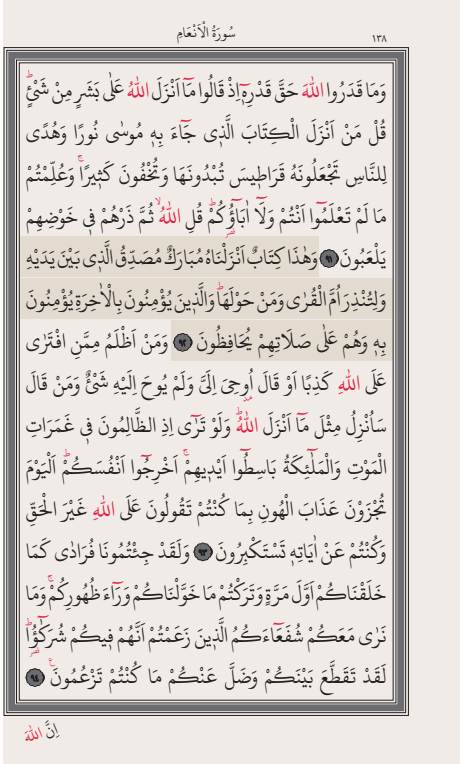 سُورَةُ الْاَنْعَامِ ١٣٨
وَمَا قَدَرُوا اللّٰهَ حَقَّ قَدْرِه۪ٓ اِذْ قَالُوا مَٓا اَنْزَلَ اللّٰهُ عَلٰى بَشَرٍ مِنْ شَيْءٍۜ
قُلْ مَنْ اَنْزَلَ الْكِتَابَ الَّذ۪ي جَٓاءَ بِه۪ مُوسٰى نُورًا وَهُدًى
لِلنَّاسِ تَجْعَلُونَهُ قَرَاط۪يسَ تُبْدُونَهَا وَتُخْفُونَ كَث۪يرًاۚ وَعُلِّمْتُمْ
مَا لَمْ تَعْلَمُٓوا اَنْتُمْ وَلَٓا اٰبَٓاؤُ۬كُمْۜ قُلِ اللّٰهُۙ ثُمَّ ذَرْهُمْ ف۪ي خَوْضِهِمْ
يَلْعَبُونَ ﴿٩١﴾ وَهٰذَا كِتَابٌ اَنْزَلْنَاهُ مُبَارَكٌ مُصَدِّقُ الَّذ۪ي بَيْنَ يَدَيْهِ
وَلِتُنْذِرَ اُمَّ الْقُرٰى وَمَنْ حَوْلَهَاۜ وَالَّذ۪ينَ يُؤْمِنُونَ بِالْاٰخِرَةِ يُؤْمِنُونَ
بِه۪ وَهُمْ عَلٰى صَلَاتِهِمْ يُحَافِظُونَ ﴿٩٢﴾ وَمَنْ اَظْلَمُ مِمَّنِ افْتَرٰى
عَلَى اللّٰهِ كَذِبًا اَوْ قَالَ اُو۫حِيَ اِلَيَّ وَلَمْ يُوحَ اِلَيْهِ شَيْءٌ وَمَنْ قَالَ
سَاُنْزِلُ مِثْلَ مَٓا اَنْزَلَ اللّٰهُۜ وَلَوْ تَرٰٓى اِذِ الظَّالِمُونَ ف۪ي غَمَرَاتِ
الْمَوْتِ وَالْمَلٰٓئِكَةُ بَاسِطُٓوا اَيْد۪يهِمْۚ اَخْرِجُٓوا اَنْفُسَكُمْۜ اَلْيَوْمَ
تُجْزَوْنَ عَذَابَ الْهُونِ بِمَا كُنْتُمْ تَقُولُونَ عَلَى اللّٰهِ غَيْرَ الْحَقِّ
وَكُنْتُمْ عَنْ اٰيَاتِه۪ تَسْتَكْبِرُونَ ﴿٩٣﴾ وَلَقَدْ جِئْتُمُونَا فُرَادٰى كَمَا
خَلَقْنَاكُمْ اَوَّلَ مَرَّةٍ وَتَرَكْتُمْ مَا خَوَّلْنَاكُمْ وَرَٓاءَ ظُهُورِكُمْۚ وَمَا
نَرٰى مَعَكُمْ شُفَعَٓاءَكُمُ الَّذ۪ينَ زَعَمْتُمْ اَنَّهُمْ ف۪يكُمْ شُرَكٰٓؤُ۬اۜ
لَقَدْ تَقَطَّعَ بَيْنَكُمْ وَضَلَّ عَنْكُمْ مَا كُنْتُمْ تَزْعُمُونَ۟ ﴿٩٤﴾
اِنَّ اللّٰهَ